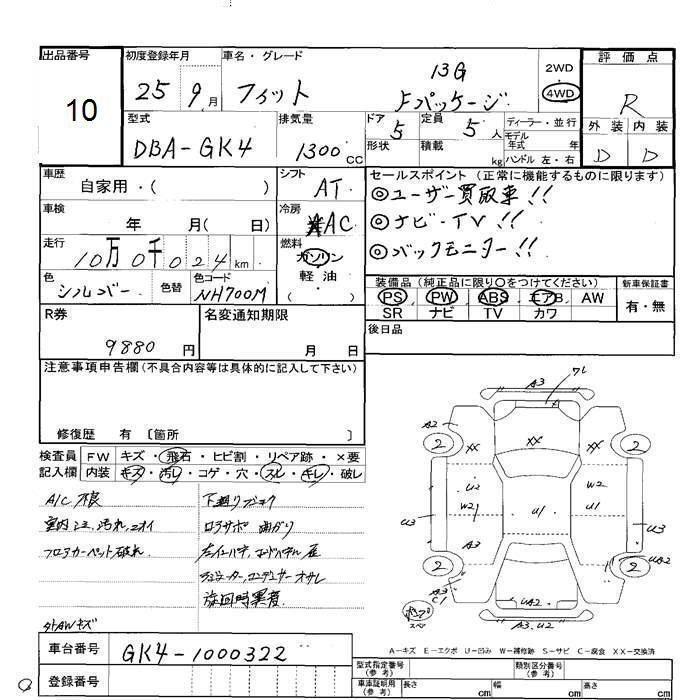 出品番号 初度登録年月 車名・グレード 評価点
10
25 9月 フィット 13G Fパッケージ 2WD 4WD R
型式 排気量 ドア 定員 ディーラー・並行 外装 内装
DBA-GK4 1300CC 5 5人 モデル年式 年 D D
形状 積載 kg ハンドル 左・右
車歴 シフト セールスポイント (正常に機能するものに限ります)
自家用・( ) AT ◎ユーザー買取車!!
車検 冷房 ◎ナビ・TV!!
年 月( 日) AAC ◎バックモニター!!
走行 燃料
10万0千024km ガソリン
軽油
色 色替 色コード 装備品(純正品に限り○をつけてください) 新車保証書
シルバー NH700M PS PW ABS エアB AW 有・無
SR ナビ TV カワ
R券 名変通知期限 後日品
9880円 月 日
注意事項申告欄(不具合内容等は具体的に記入して下さい)
修復歴 有 〔箇所 〕
検査員 FW キズ・飛石・ヒビ割・リペア跡・×要
記入欄 内装 キズ・汚レ・コゲ・穴・スレ・キレ・破レ
A/C 不良
室内シミ、汚れ、ニオイ ロアサポ 曲がり
フロアカーペット破れ
旋回時異音
外AWキズ
車台番号 GK4-1000322
登録番号
A3 ワレ
A2 2 XX XX XX 2
U2 W2 W2
U3 U1 U1 U3
A3 UA2
2 2
A3 C1 UA2
A3.U2
A-キズ E-エクボ U-凹み W-補修跡 S-サビ C-腐食 XX-交換済
型式指定番号(参考) 類別区分番号(参考)
車庫証明用(参考) 長さ cm 幅 cm 高さ cm